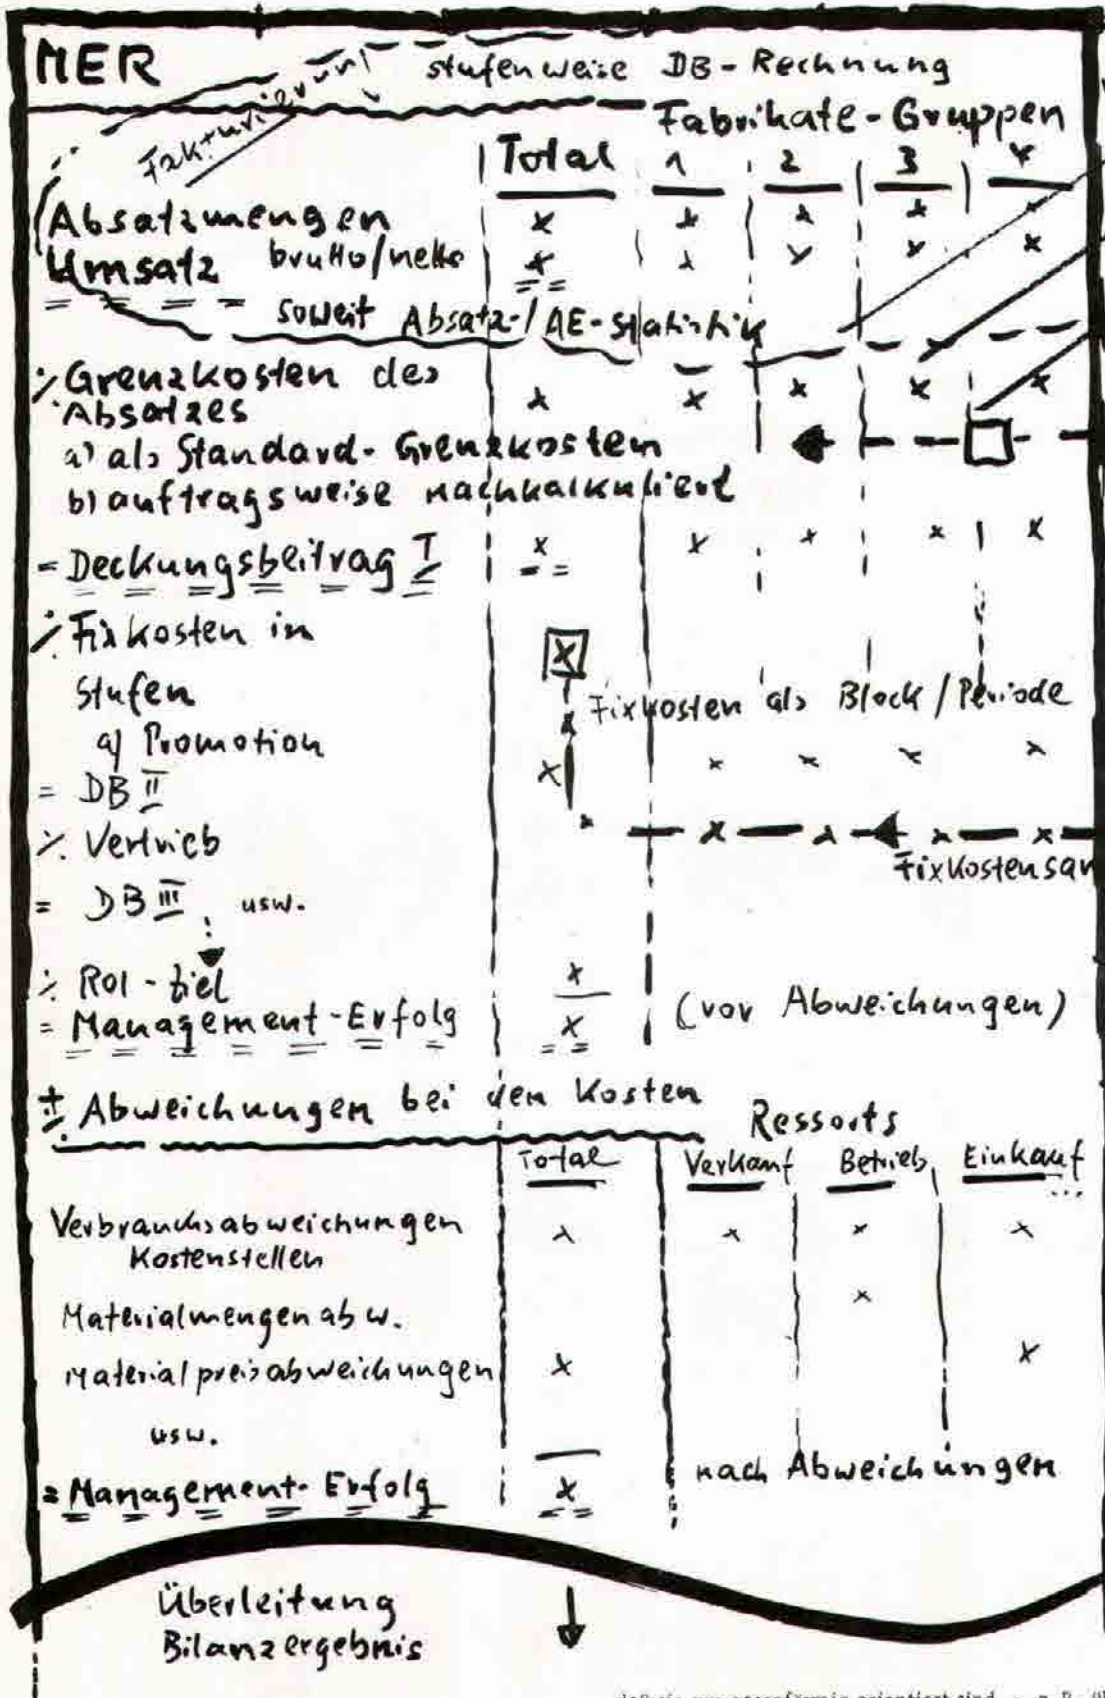 MER
stufenweise DB-Rechnung
Fakturierung
Fabrikate-Gruppen
Total 1 2 3 4
Absatzmengen x x x x x
Umsatz brutto/netto x x x x x
soweit Absatz-/AE-Statistik
./. Grenzkosten des
Absatzes x x x x x
a) als Standard-Grenzkosten
b) auftragsweise nachkalkuliert
= Deckungsbeitrag I x x x x x
./. Fixkosten in x
Stufen
Fixkosten als Block/Periode
a) Promotion x
= DB II x x x x x
./. Vertrieb x x x x x
Fixkostensan
= DB III usw.
./. ROI-Ziel x
= Management-Erfolg x (vor Abweichungen)
± Abweichungen bei den Kosten
Ressorts
Total Verkauf Betrieb Einkauf ...
Verbrauchsabweichungen x x x x
Kostenstellen
Materialmengenabw. x
Materialpreisabweichungen x x
usw.
= Management-Erfolg x nach Abweichungen
Überleitung
Bilanzergebnis